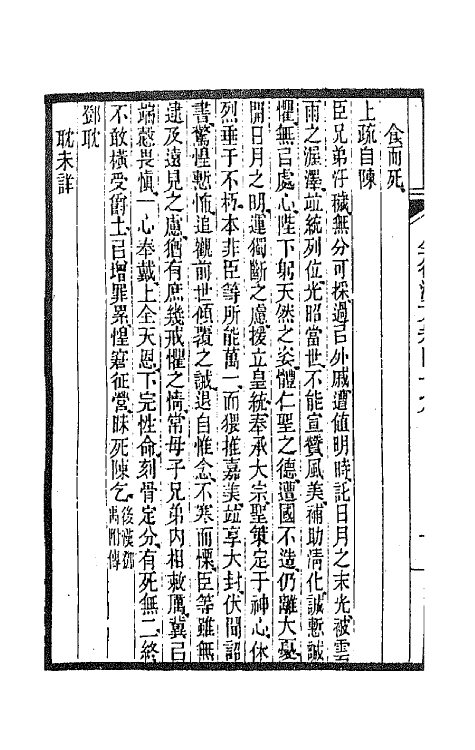 食而死
上疏自陳
臣兄弟汙穢無分可採過㠯外戚遭値明時託日月之末光被雲
雨之渥澤竝統列位光昭當世不能宣贊風美補助淸化誠慙誠
懼無㠯處心陛下躬天然之姿體仁聖之德遭國不造仍離大憂
開日月之明運獨斷之慮援立皇統奉承大宗聖策定于神心休
烈垂于不朽本非臣等所能萬一而猥推嘉美竝享大封伏聞詔
書驚惶慙怖追觀前世傾覆之誡退自惟念不寒而慄臣等雖無
逮及遠見之慮猶有庶幾戒懼之情常母子兄弟內相敕厲冀㠯
端慤畏愼一心奉戴上全天恩下完性命刻骨定分有死無二終
不敢橫受爵土㠯增罪累惶窘征營昧死陳乞後漢鄧禹附傳
鄧耽
耽未詳